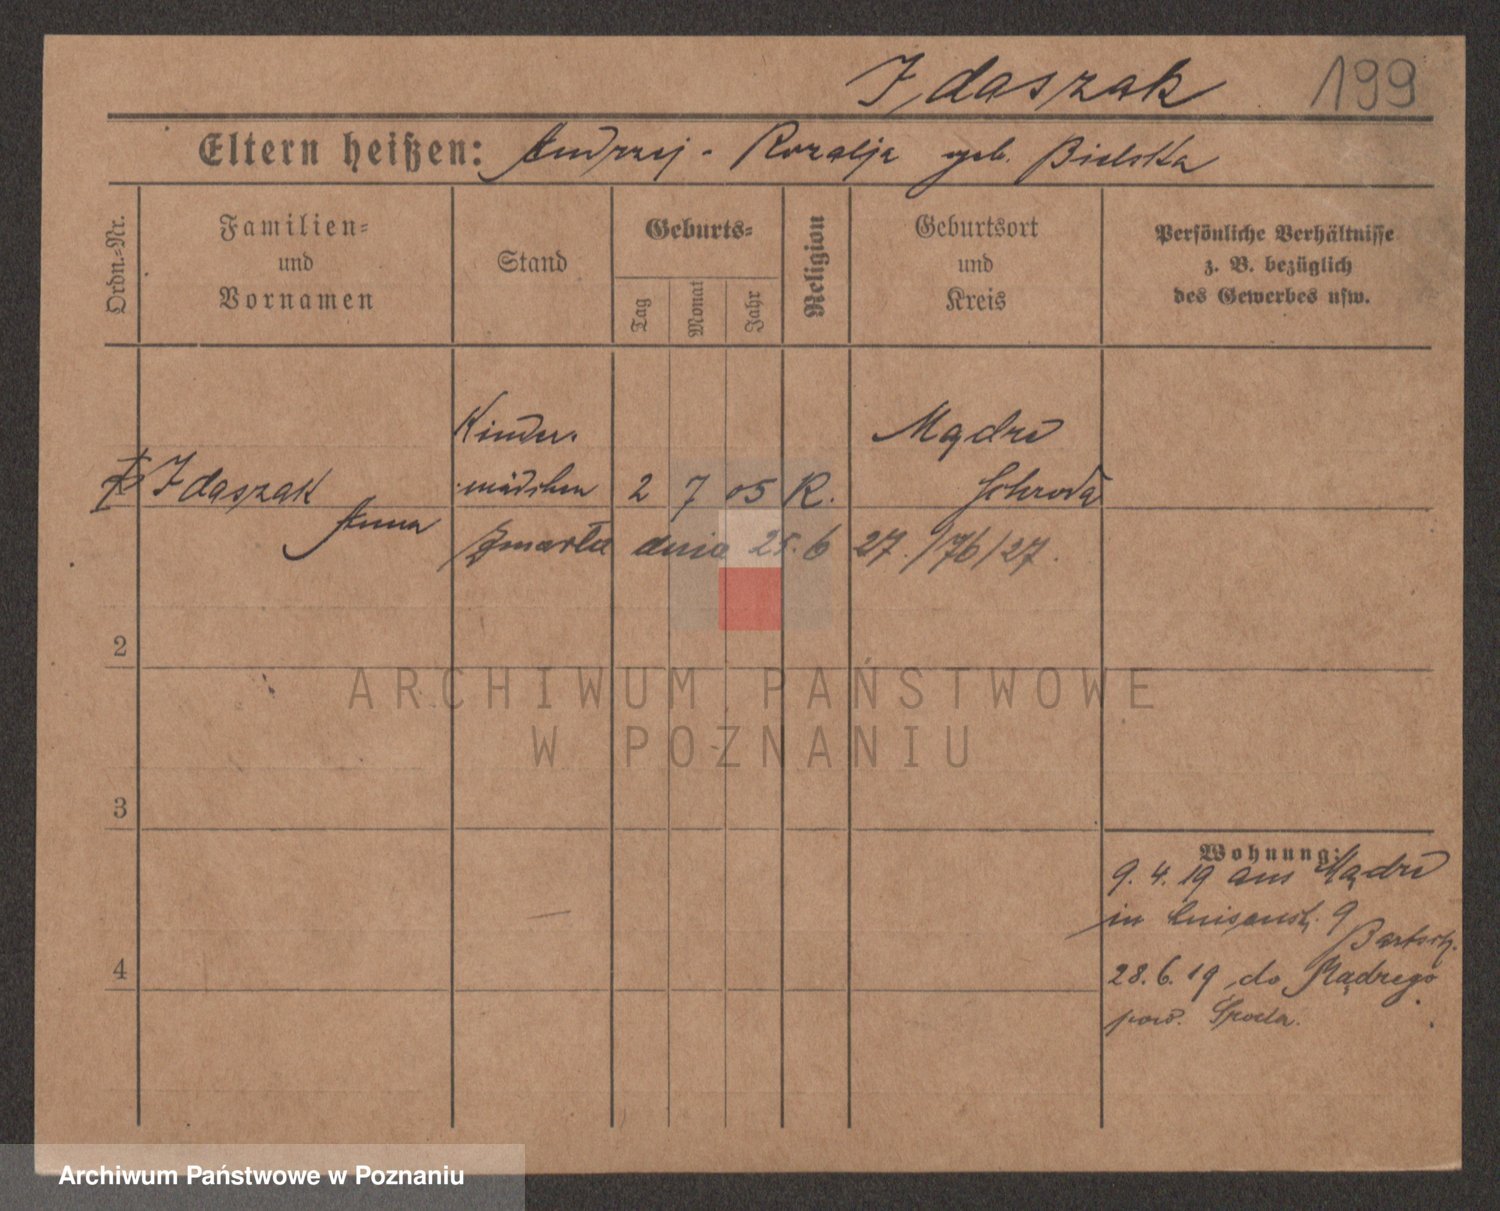 Idaszak 199
Eltern heißen: Andrzej - Rozalja geb. Bielska
Ordn.-Nr.
Familien-
und
Vornamen
Stand
Geburts-
Tag
Monat
Jahr
Religion
Geburtsort
und
Kreis
Persönliche Verhältnisse
z. B. bezüglich
des Gewerbes usw.
Kinder-
mädchen
Mądre
Idaszak 2 7 05 R. Schroda
Anna
Zmarła dnia 25. 6 27. /76/27.
2
3
4
Wohnung:
9. 4. 19 aus Mądre
in Luisenst. 9
Bartsch.
28. 6. 19 do Mądrego
pow. Środa.
ARCHIWUM PAŃSTWOWE
W POZNANIU
Archiwum Państwowe w Poznaniu